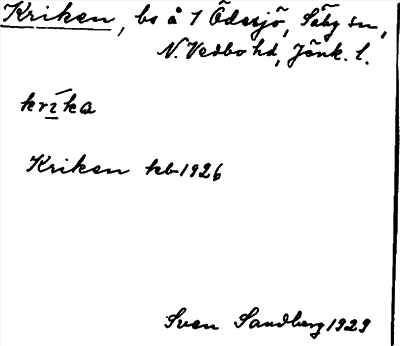 Kriken, bs å 1 Ödesjö, Säby sn,
N. Vedbo hd, Jönk. l.
kríka
Kriken kb 1926
Sven Sandberg 1929